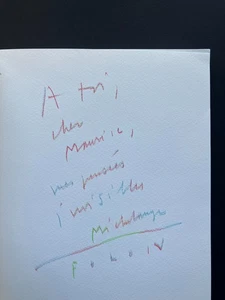 A toi,
cher
Maurice,
mes pensées
invisibles
Michelange